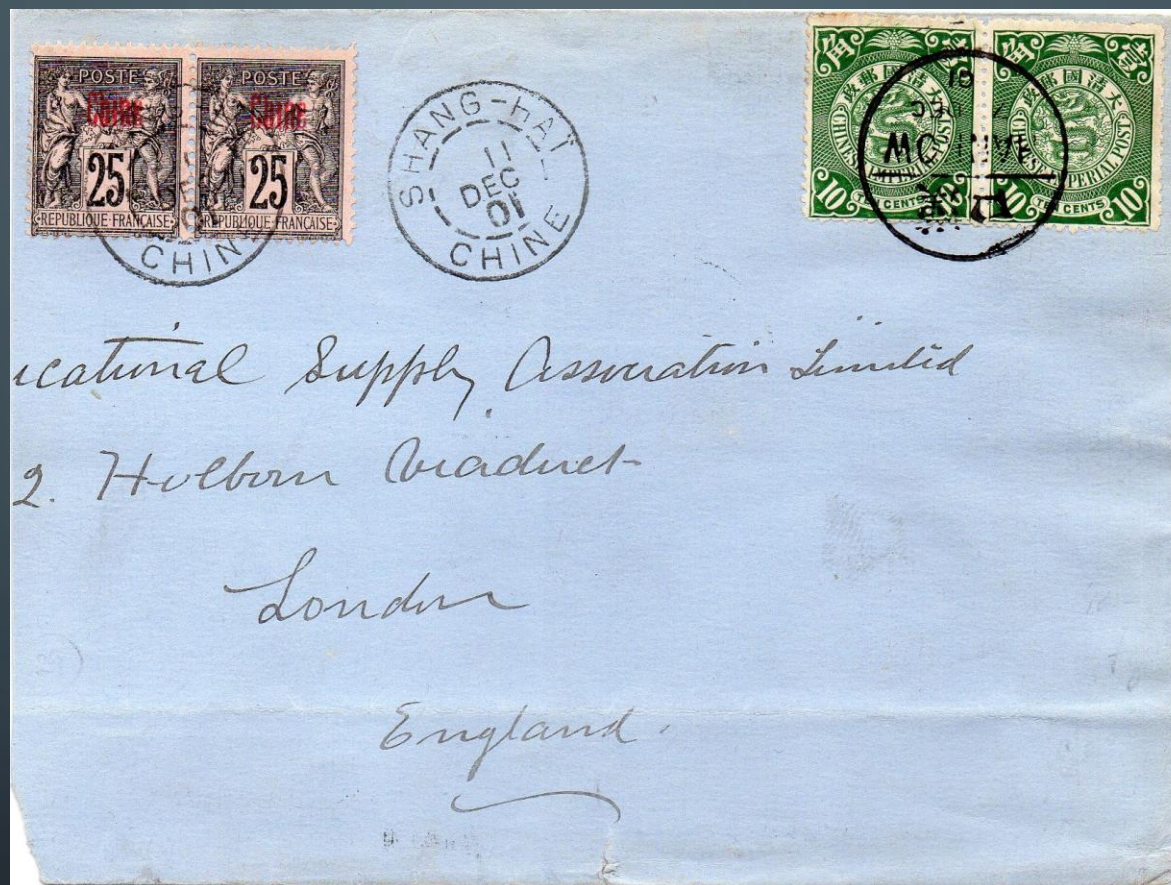 POSTE
Chine
25
REPUBLIQUE·FRANÇAISE
POSTE
Chine
25
REPUBLIQUE·FRANÇAISE
CHINE
SHANG-HAÏ
11
DEC
01
CHINE
角
政郵國清大
10 TEN CENTS
壹
政郵國清大
IMPERIAL POST
10 TEN CENTS 10
ucational Supply Association Limited
2. Holborn Viaduct
London
England.